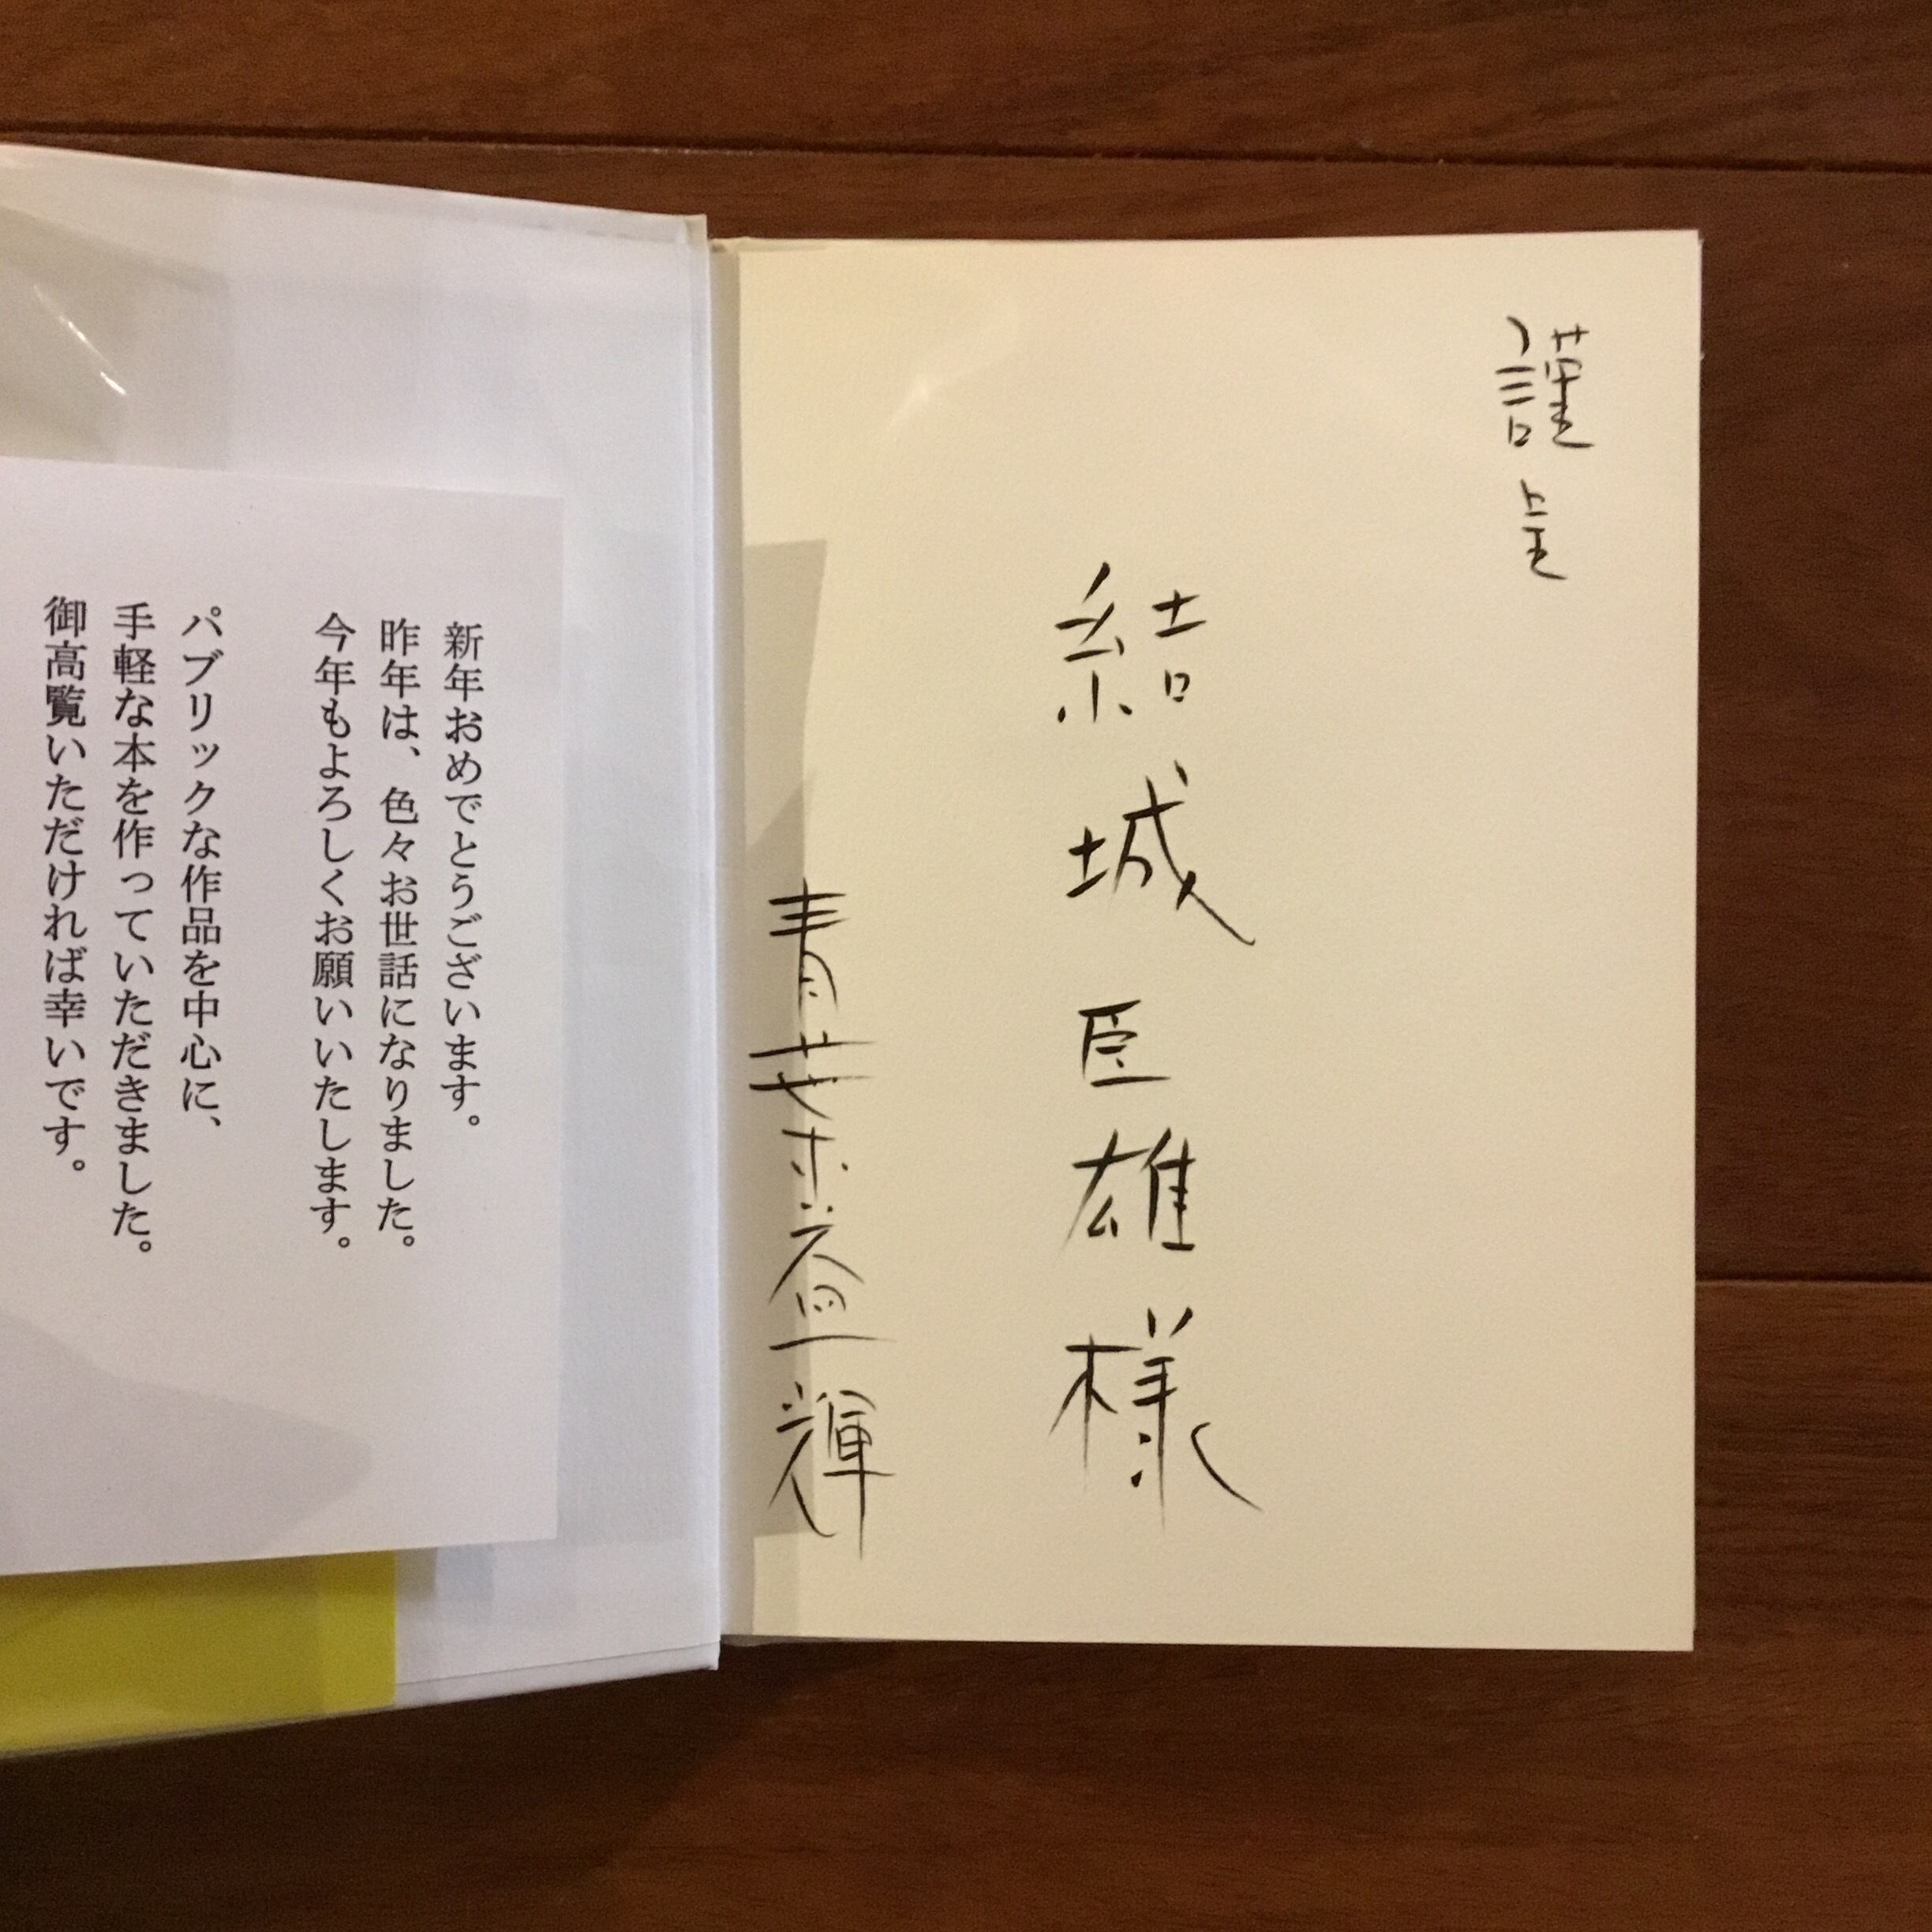 謹呈
結城臣雄様
青葉益輝
新年おめでとうございます。
昨年は、色々お世話になりました。
今年もよろしくお願いいたします。
パブリックな作品を中心に、
手軽な本を作っていただきました。
御高覧いただければ幸いです。